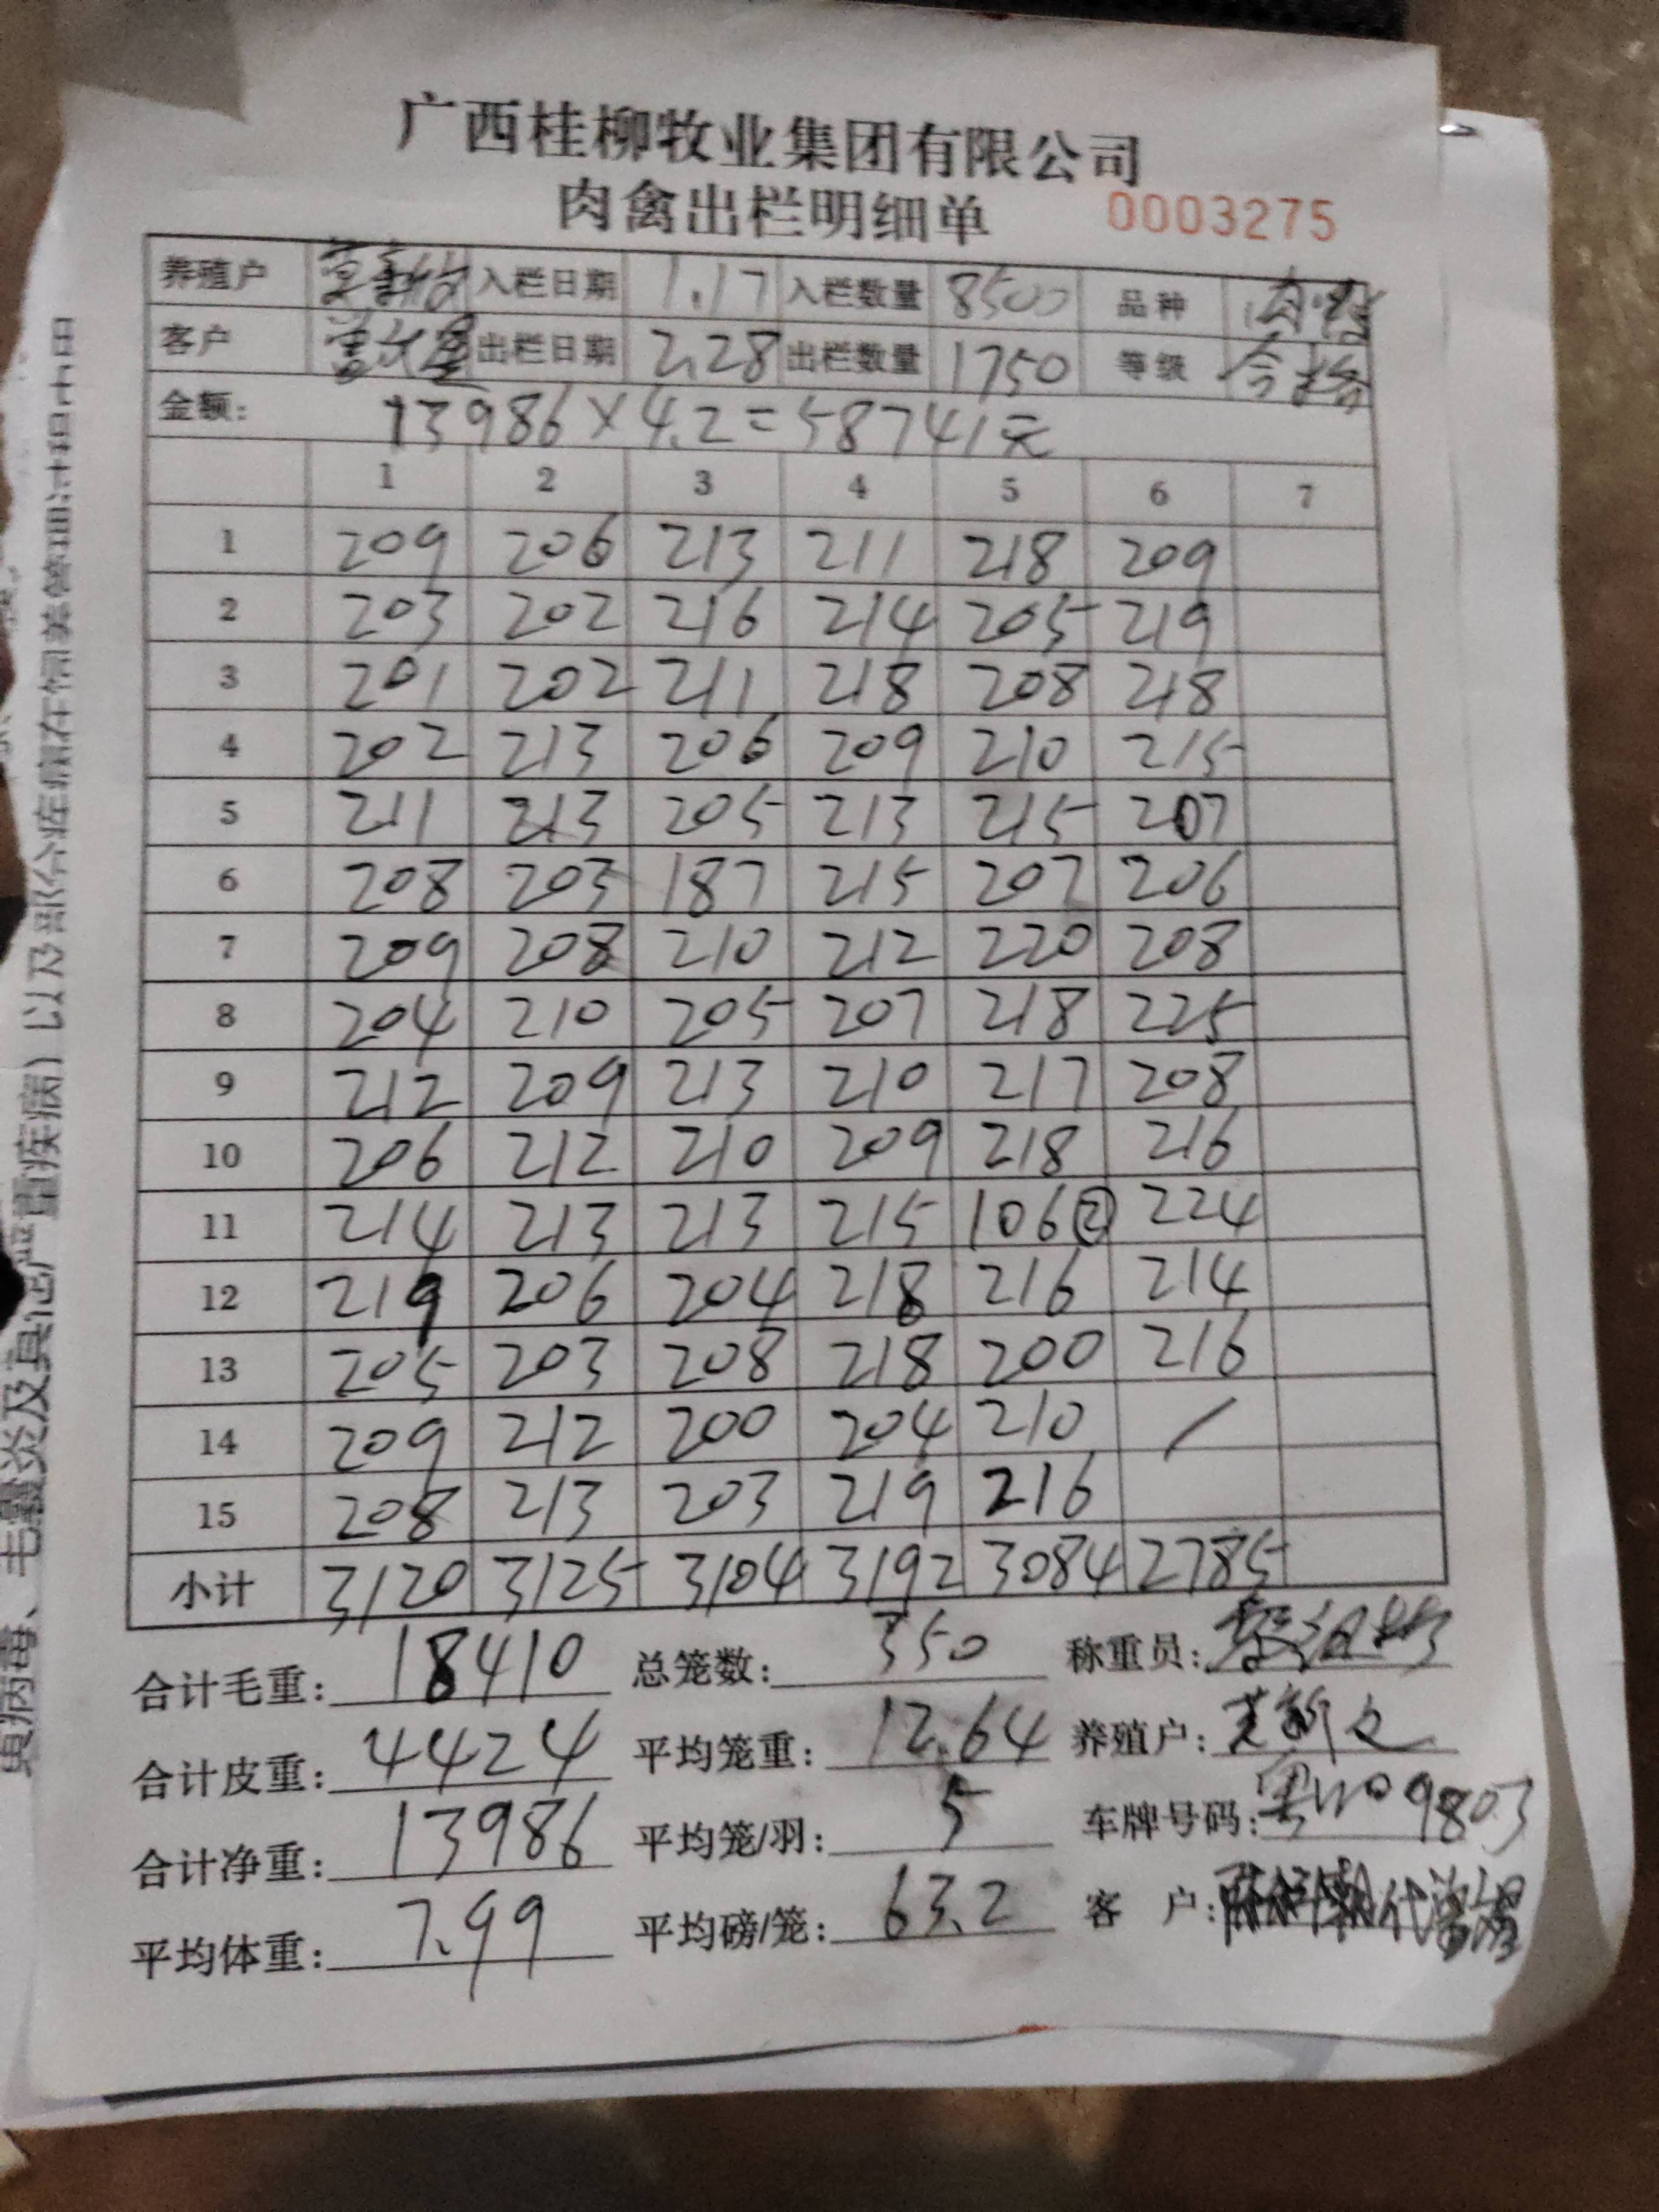 广西桂柳牧业集团有限公司
肉禽出栏明细单 0003275
养殖户 入栏日期 1.17 入栏数量 8500 品种 肉鸭
客户 出栏日期 2.28 出栏数量 1750 等级 合格
金额: 13986×4.2=58741元
1 2 3 4 5 6 7
1 209 206 213 211 218 209
2 203 202 216 214 205 219
3 201 202 211 218 208 218
4 202 213 206 209 210 215
5 211 213 205 213 215 207
6 208 203 187 215 207 206
7 209 208 210 212 220 208
8 204 210 205 207 218 225
9 212 209 213 210 217 208
10 206 212 210 209 218 216
11 214 213 213 215 106② 224
12 219 206 204 218 216 214
13 205 203 208 218 200 216
14 209 212 200 204 210 /
15 208 213 203 219 216
小计 3120 3125 3104 3192 3084 2785
合计毛重: 18410 总笼数: 350 称重员:
合计皮重: 4424 平均笼重: 12.64 养殖户:
合计净重: 13986 平均笼/羽: 5 车牌号码: 9803
平均体重: 7.99 平均磅/笼: 63.2 客户: 代
毛囊炎及其他严重疾病)以及部分